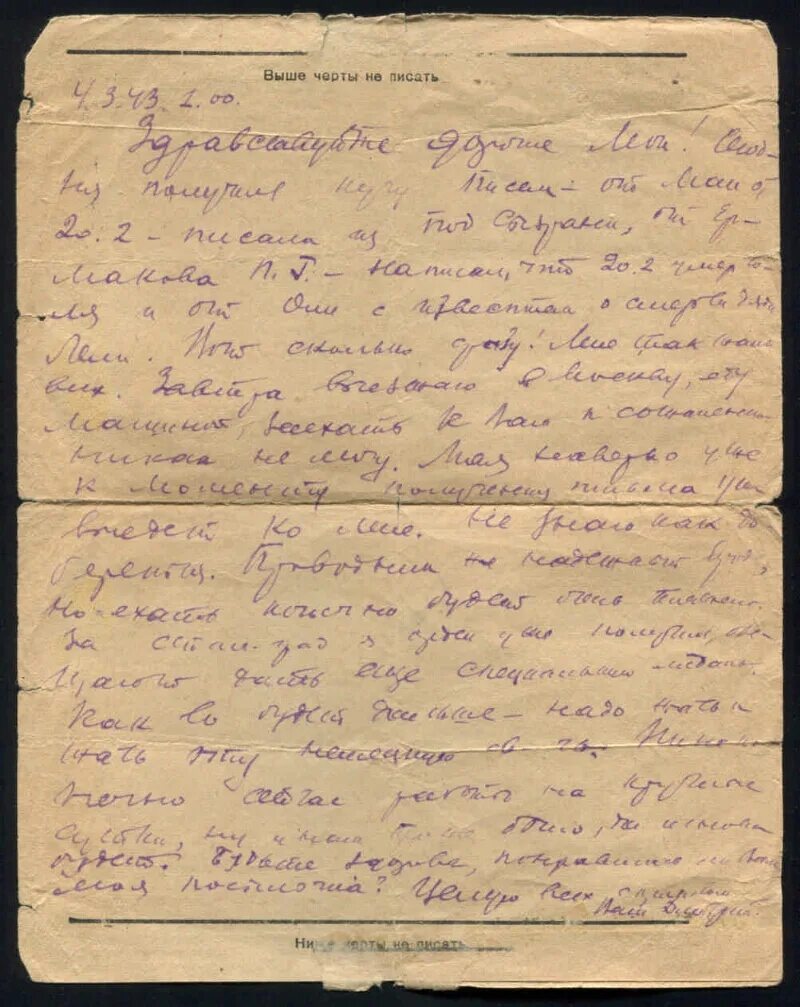 Выше черты не писать
4.3.43. 1.00.
Здравствуйте дорогие Мои! Сегод-
ня получил кучу писем – от Маи от
20.2 – писала из под Сызрани, от Ер-
макова П.Г. – написал, что 20.2 умер
и от Оли с известием о смерти дяди
Лели. Вот сколько сразу! Мне так
вех. Завтра выезжаю в Москву, еду
машиной, заехать к Вам к сожалению
никак не могу. Мая наверно уже
к моменту получения письма
выедет ко мне. Не знаю как до
берется. Проводник не надежный
но ехать конечно будет очень
За град я орден уже получил, обе-
щают дать еще специальную медаль.
Как то будет дальше – надо гнать и
гнать эту немецкую св-чь.
нечно сейчас работы на круглые
сутки, ну и было, да и снова
будет. Будьте здоровы, понравилась ли Вам
моя посылочка? Целую всех
Ваш Дмитрий.
Ниже черты не писать